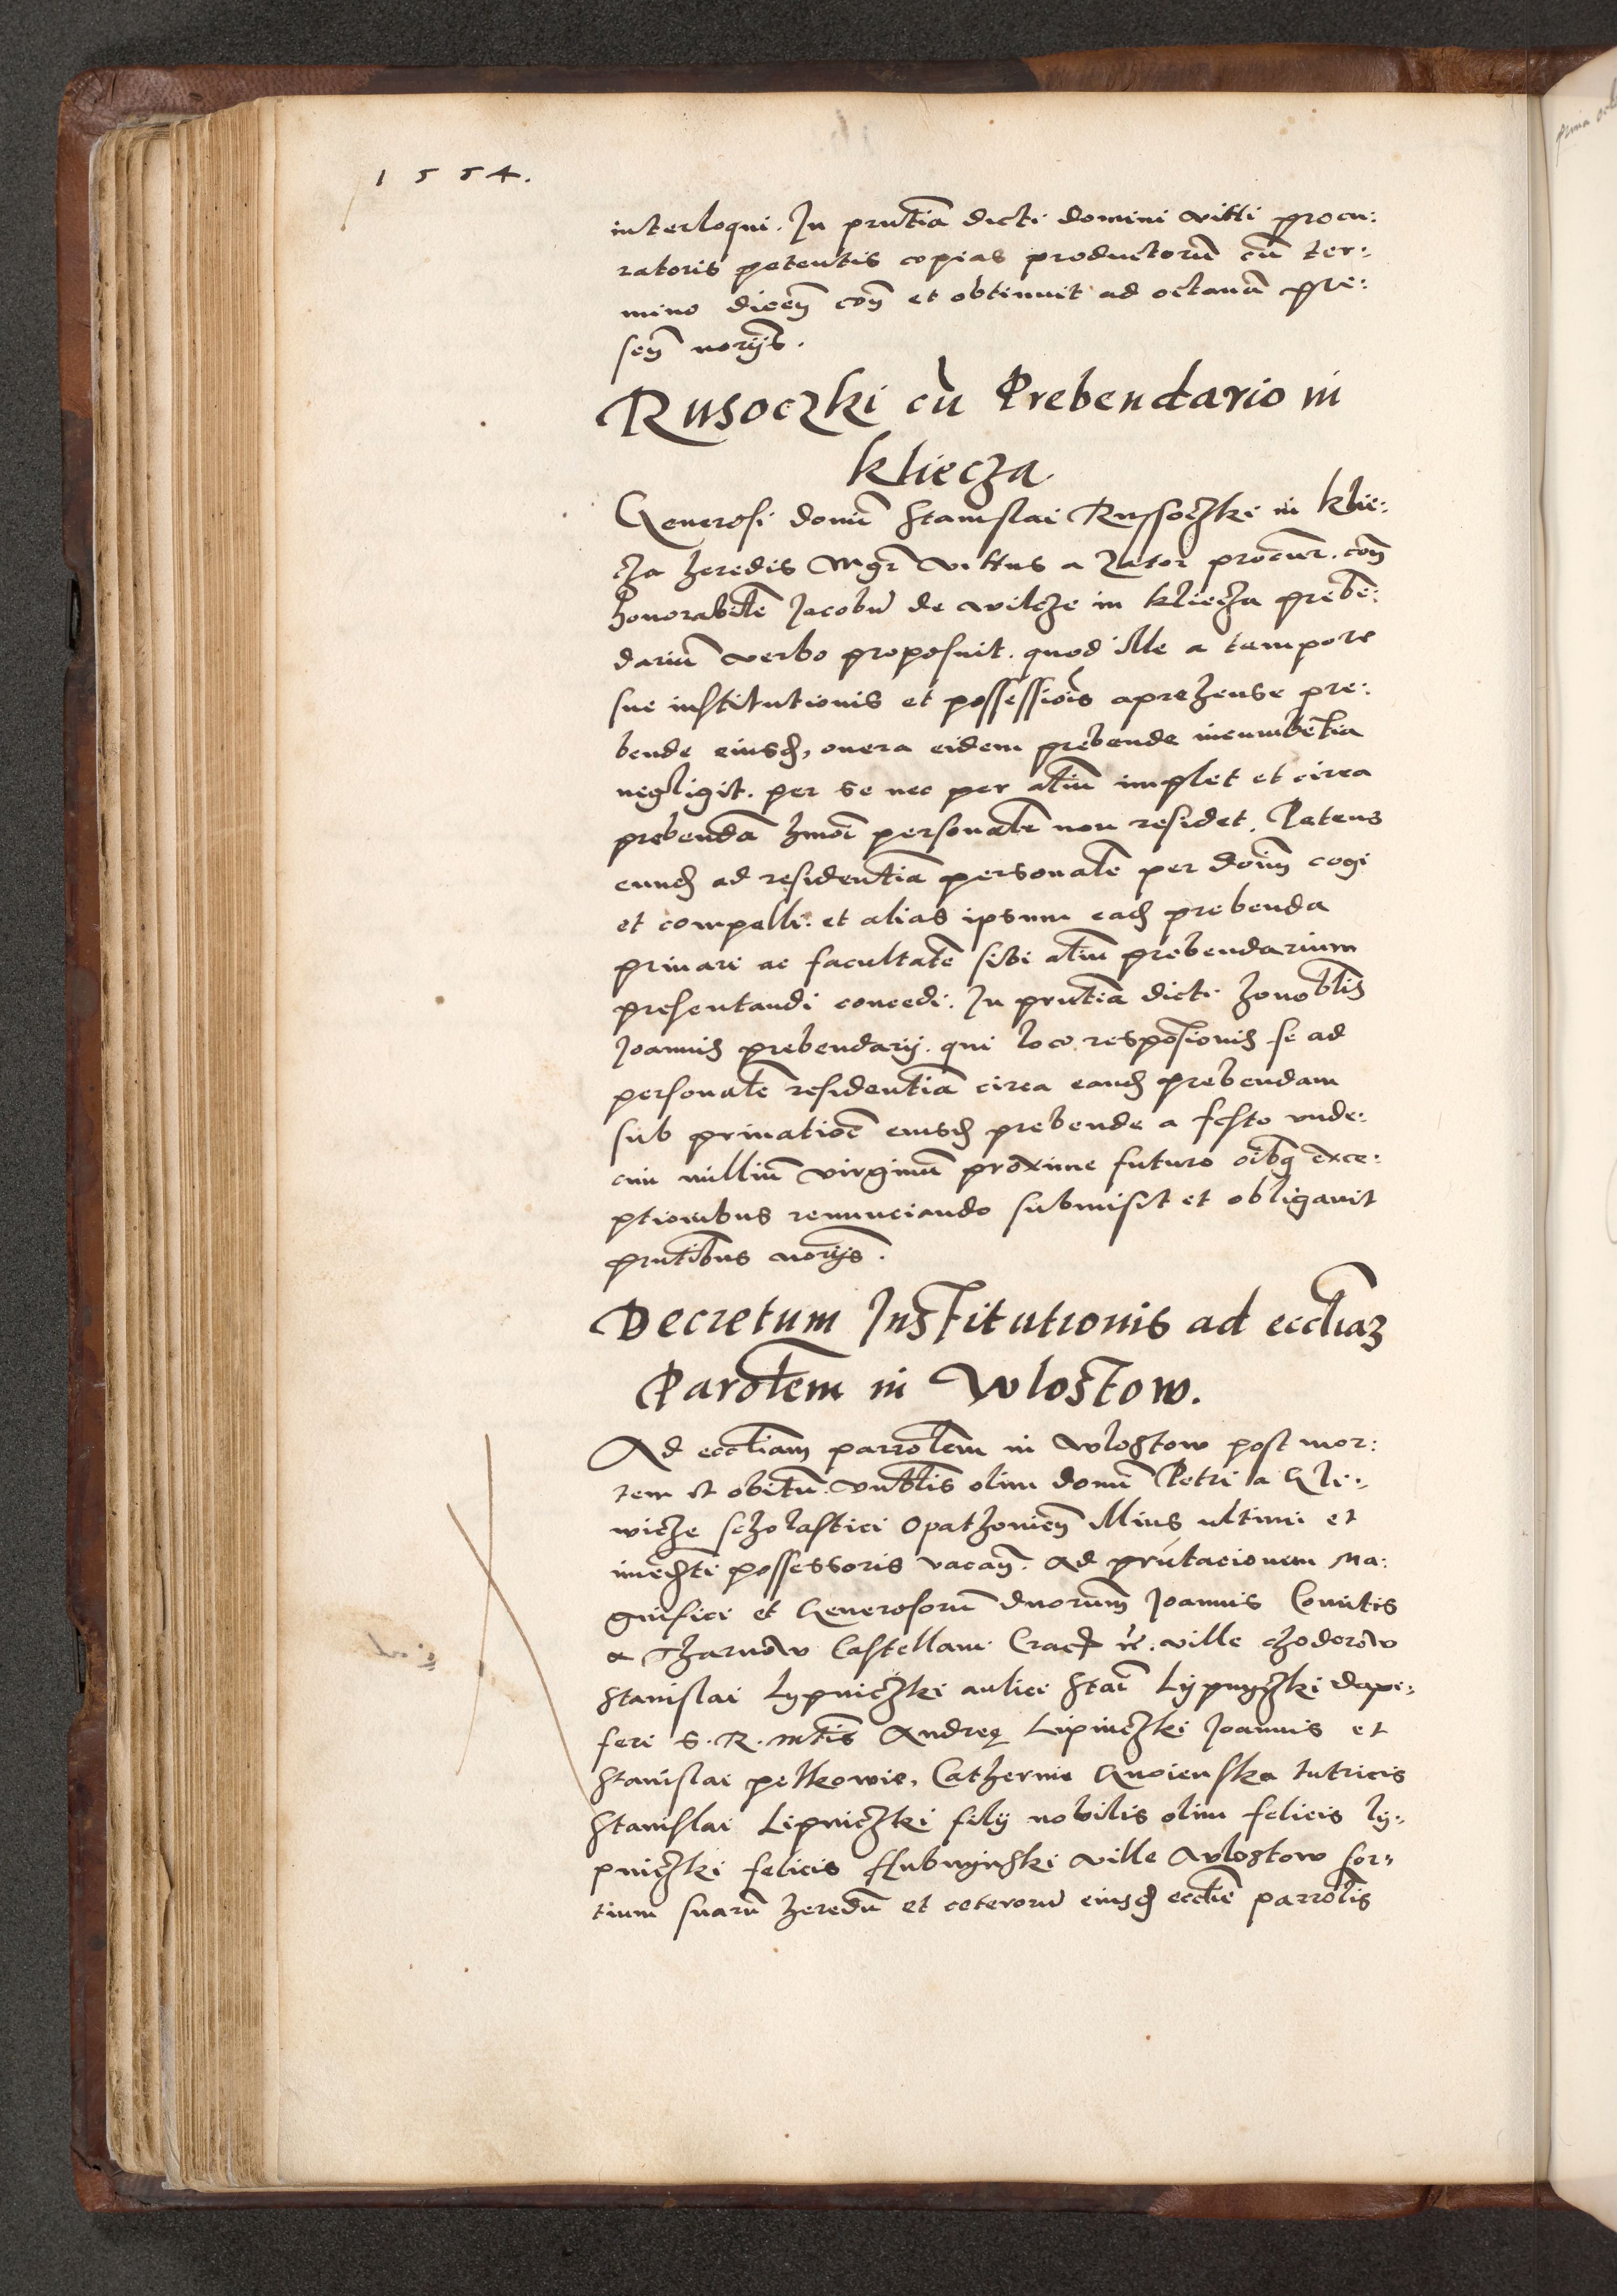 1554.
interloqui. In pñtia dicti domini Vitti procu:
ratoris petentis copias productorũ cũ ter:
mino dicen̄ con̄ et obtinuit ad octauã pre:
sen̄ norijs.
Rusoczki cũ Prebendario in
Kliecza
Generosi domĩ Stanislai Russoczki in Klie:
cza heredis Mgr̃ Vittus a Zator procur. con̄
honorabilẽ Jacobũ de Wilcze in Kliecza prebẽ:
dariũ verbo proposuit. quod ille a tempore
sue institutionis et possessiõis aprehense pre:
bende eiusđ, onera eidem prebende incumbẽtia
negligit. per se nec per aliũ implet et circa
prebendã hmõi personalr̃ non residet. Petens
eunđ ad residentiã personalẽ per doïm̃ cogi
et compelli: et alias ipsum eađ prebenda
priuari ac facultatẽ sibi aliũ prebendarium
presentandi concedi. In pñtia dicti honoblis̃
Joannis prebendarij. qui loco respõsionis se ad
personalẽ residentiã circa eanđ prebendam
sub priuatiõe eiusđ prebende a festo vnde:
cim milliũ virginũ proxime futuro oĩbq̃ exce:
ptionibus renunciando submisit et obligauit
pñtibus norijs.
Decretum Institutionis ad eccliaz
Parolem̃ in Wlostow.
Ad eccliam parrolem̃ in Wlostow post mor:
tem et obitũ. Vnblis̃ olim domĩ Petri a Gli:
wicze scholastici Opathonien̄ illius ultimi et
immẽdti possessoris vacan̄. Ad prñtacionem Ma:
gnifici et Generosorũ dnorum̃ Joannis Comitis
a Tharnow Castellani Crac̃ rc̃. ville Chodorow
Stanislai Lypniczki aulici Staĩ Lypnyczki dapi:
feri S. R. mtis̃ Andreę Lipniczki Joannis et
Stanislai pelkowie, Catherine Gnoienska tutricis
Stanislai Lipniczki filij nobilis olim felicis ly:
pniczki felicis ville Wlostow sor:
tium suarũ heredũ et ceterorũ eiusđ ecclie parrolis̃